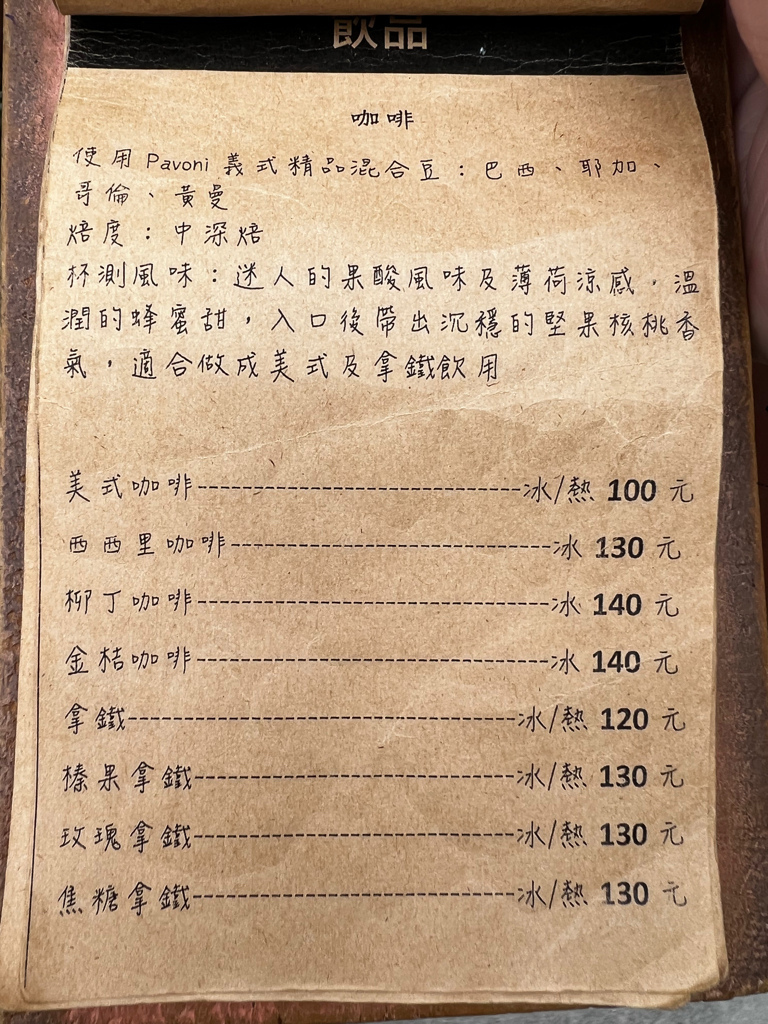 飲品
咖啡
使用 Pavoni 義式精品混合豆：巴西、耶加、
哥倫、黃曼
焙度：中深焙
杯測風味：迷人的果酸風味及薄荷涼感，溫
潤的蜂蜜甜，入口後帶出沉穩的堅果核桃香
氣，適合做成美式及拿鐵飲用
美式咖啡--------------------------------冰/熱 100 元
西西里咖啡--------------------------------冰 130 元
柳丁咖啡-----------------------------------冰 140 元
金桔咖啡-----------------------------------冰 140 元
拿鐵---------------------------------------冰/熱 120 元
榛果拿鐵--------------------------------冰/熱 130 元
玫瑰拿鐵--------------------------------冰/熱 130 元
焦糖拿鐵--------------------------------冰/熱 130 元